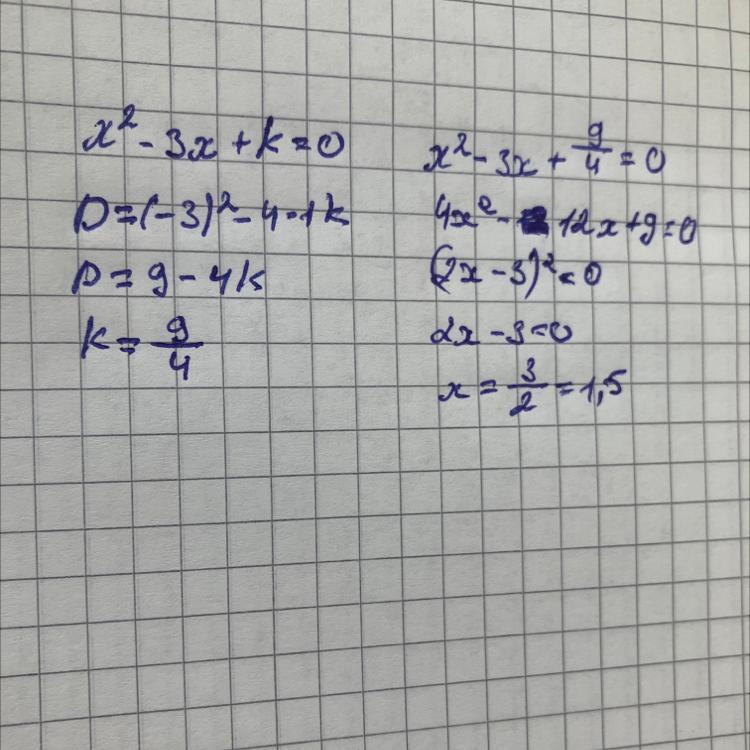 x² - 3x + k = 0
D = (-3)² - 4·1k
D = 9 - 4k
k = 9/4
x² - 3x + 9/4 = 0
4x² - 12x + 9 = 0
(2x - 3)² = 0
2x - 3 = 0
x = 3/2 = 1,5